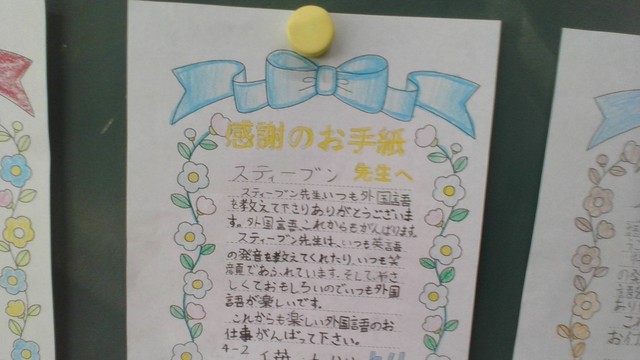 感謝のお手紙
スティーブン 先生へ
スティーブン先生いつも外国語
を教えて下さりありがとうございま
す。外国語、これからもがんばります。
スティーブン先生は、いつも英語
の発音を教えてくれたり、いつも笑
顔であふれています。そして、やさ
しくておもしろいのでいつも外国
語が楽しいです。
これからも楽しい外国語のお
仕事がんばって下さい。
4-2